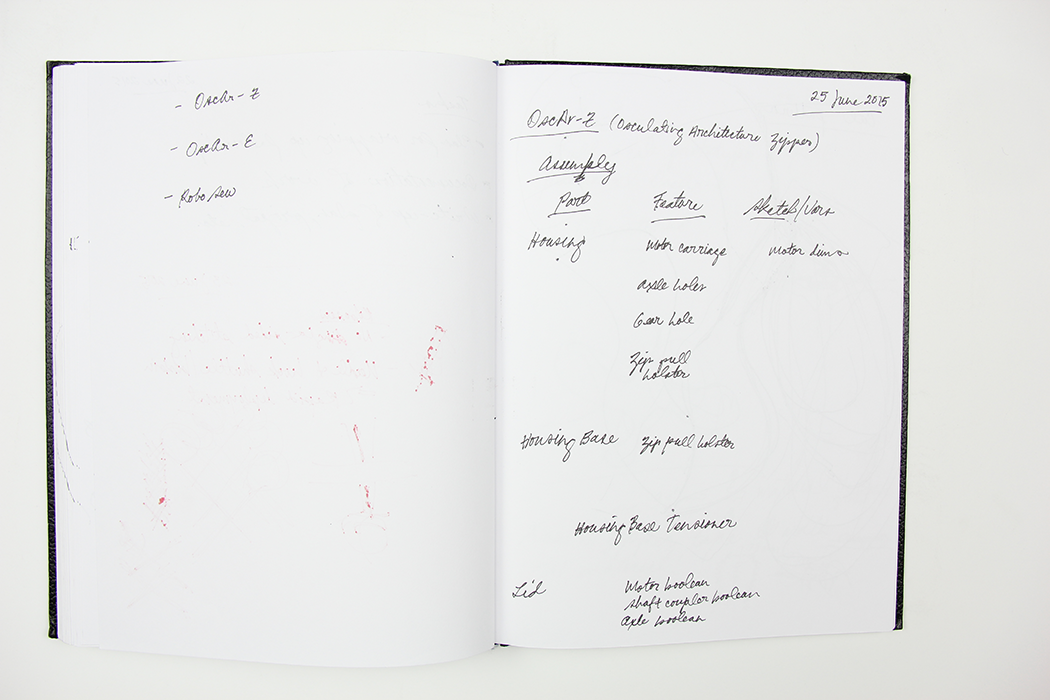 - OscAr-Z
- OscAr-E
- Robo Sew
25 June 2015
OscAr-Z (Osculating Architecture Zipper)
Assembly
Part Feature Sketch/Vars
Housing Motor carriage Motor dims
Axle holes
Gear hole
Zip pull
holster
Housing Base Zip pull holster
Housing Base Tensioner
Lid Motor boolean
Shaft coupler boolean
Axle boolean